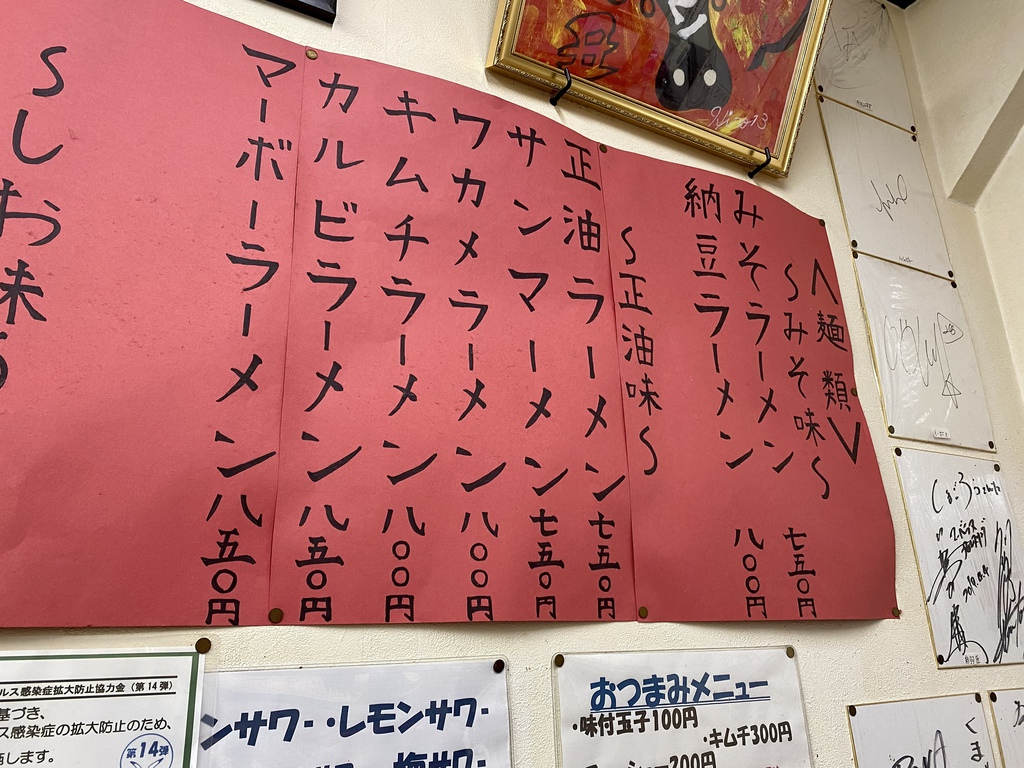 ＜麺類＞
〜みそ味〜
みそラーメン 七五〇円
納豆ラーメン 八〇〇円
〜正油味〜
正油ラーメン 七五〇円
サンマーメン 七五〇円
ワカメラーメン 八〇〇円
キムチラーメン 八〇〇円
カルビラーメン 八五〇円
マーボーラーメン 八五〇円
〜しお味〜
ルス感染症拡大防止協力金（第14弾）
基づき、
ス感染症の拡大防止のため、
します。
第14弾
ンサワー・レモンサワー
梅サワ
おつまみメニュー
・味付玉子100円
・キムチ300円
200円